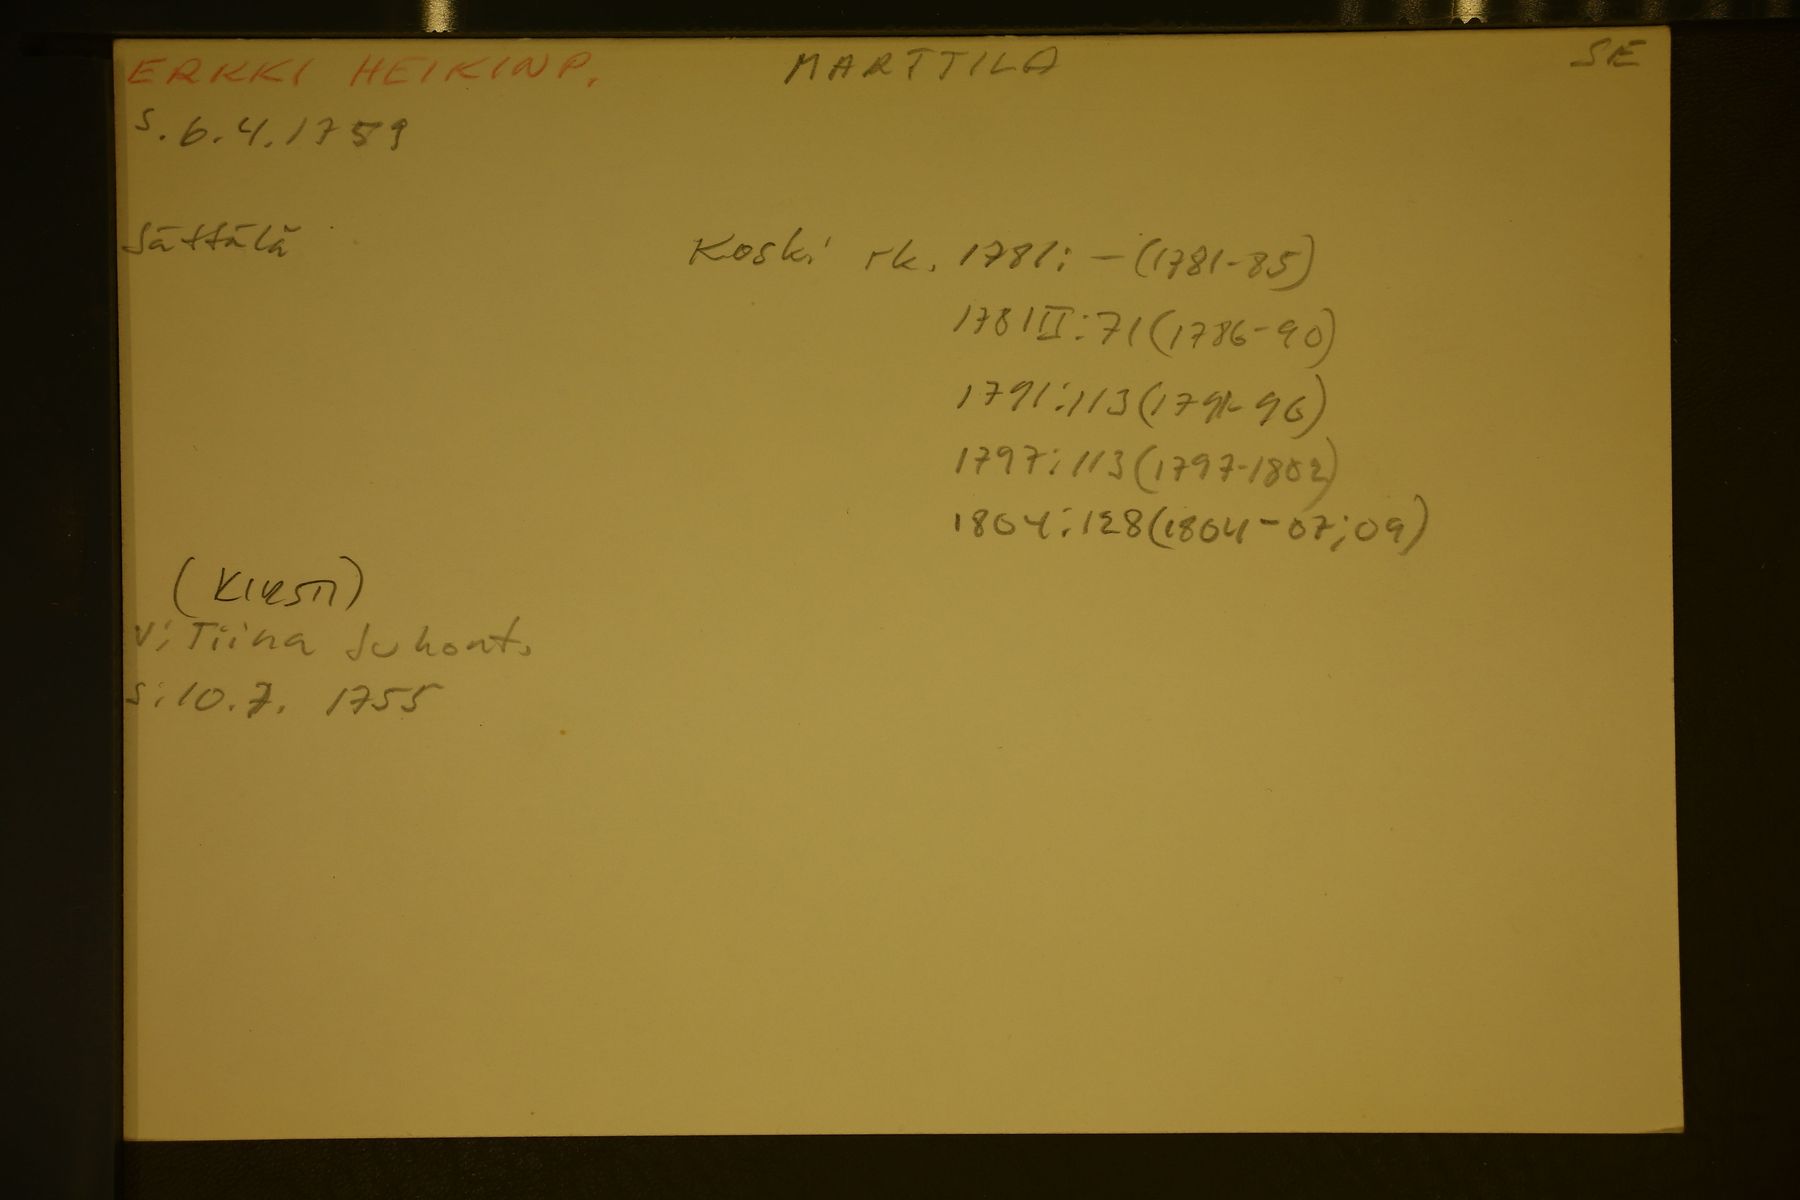 ERKKI HEIKINP. MARTTILA SE
s. 6.4.1759
Sättälä Koski rk. 1781: - (1781-85)
1781 II: 71 (1786-90)
1791: 113 (1791-96)
1797: 113 (1797-1802)
1804: 128 (1804-07; 09)
(KIRSTI)
V: Tiina Juhont.
s: 10.7. 1755